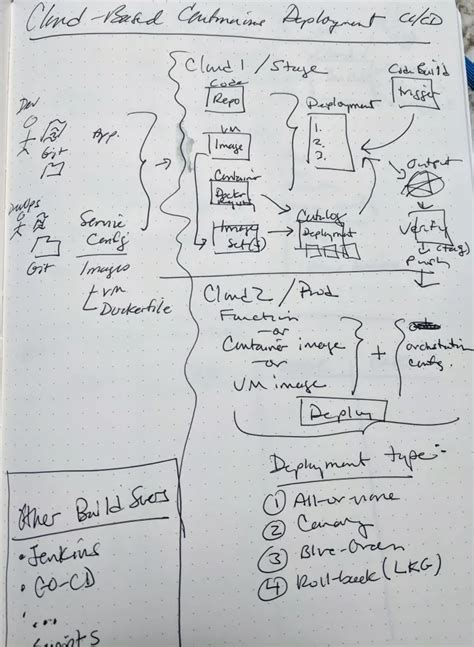 Cloud-Based Continuous Deployment CI/CD
Dev
Git
App.
DevOps
Git
Service
Config
Images
VM
Dockerfile
Cloud 1 / Stage
Code
Repo
VM
Image
Container
Docker
Image
Set(s)
Deployment
1.
2.
3.
Catalog
Deployment
Code Build
trigger
Output
Verify
(tag)
push
Cloud 2 / Prod
Function
or
Container image
or
VM image
+
orchestration
config.
Deploy
Deployment type:
① All-or-none
② Canary
③ Blue-Green
④ Roll-back (LKG)
Other Build Svers
• Jenkins
• GO-CD
• ...
Scripts